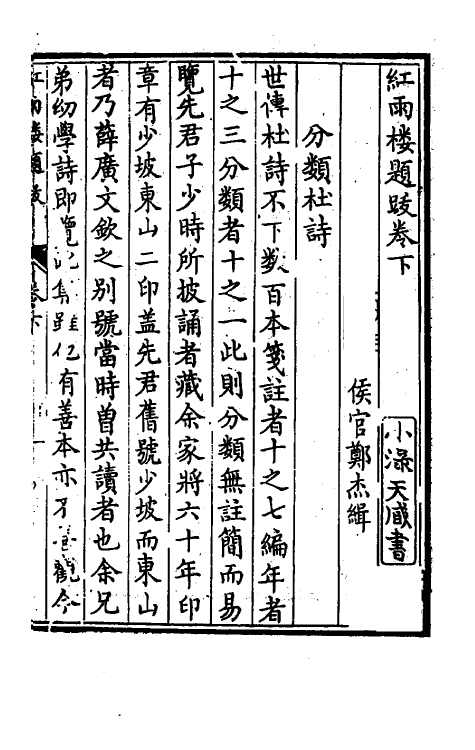 紅雨楼題跋卷下
小渌天藏書
侯官鄭杰緝
分類杜詩
世傳杜詩不下数百本箋註者十之七編年者
十之三分類者十之一此則分類無註簡而易
覽先君子少時所披誦者藏余家將六十年印
章有少坡東山二印盖先君舊號少坡而東山
者乃薛廣文欽之别號當時曽共讀者也余兄
弟幼學詩即覽此集雖仁有善本亦不喜觀今
紅雨楼題跋
卷下